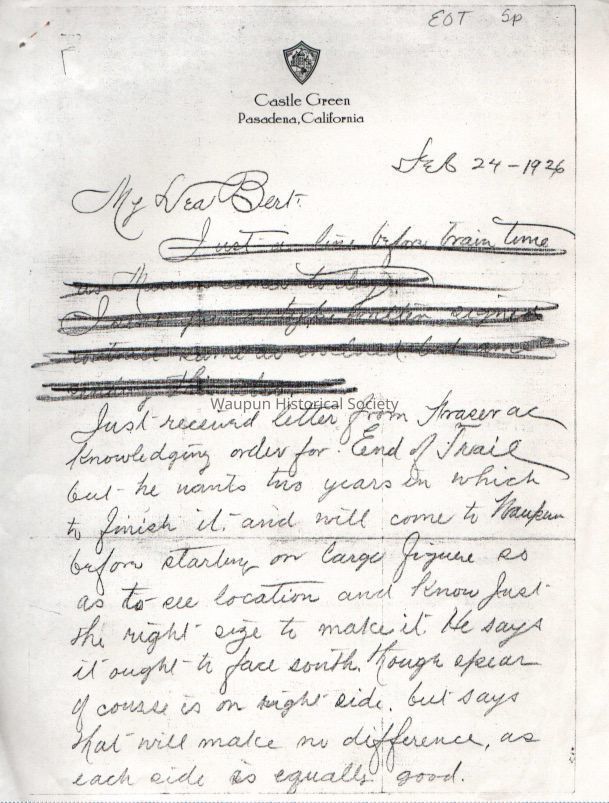 EOT Sp
Castle Green
Pasadena, California
Feb 24-1926
My Dear Bert.
Just a line before train time
Waupun Historical Society
Just received letter from Fraser ac
knowledging order for. End of Trail
but he wants two years in which
to finish it. and will come to Waupun
before starting on large figure so
as to see location and know just
the right size to make it. He says
it ought to face south. though spear
of course is on right side. but says
that will make no difference, as
each side is equally good.